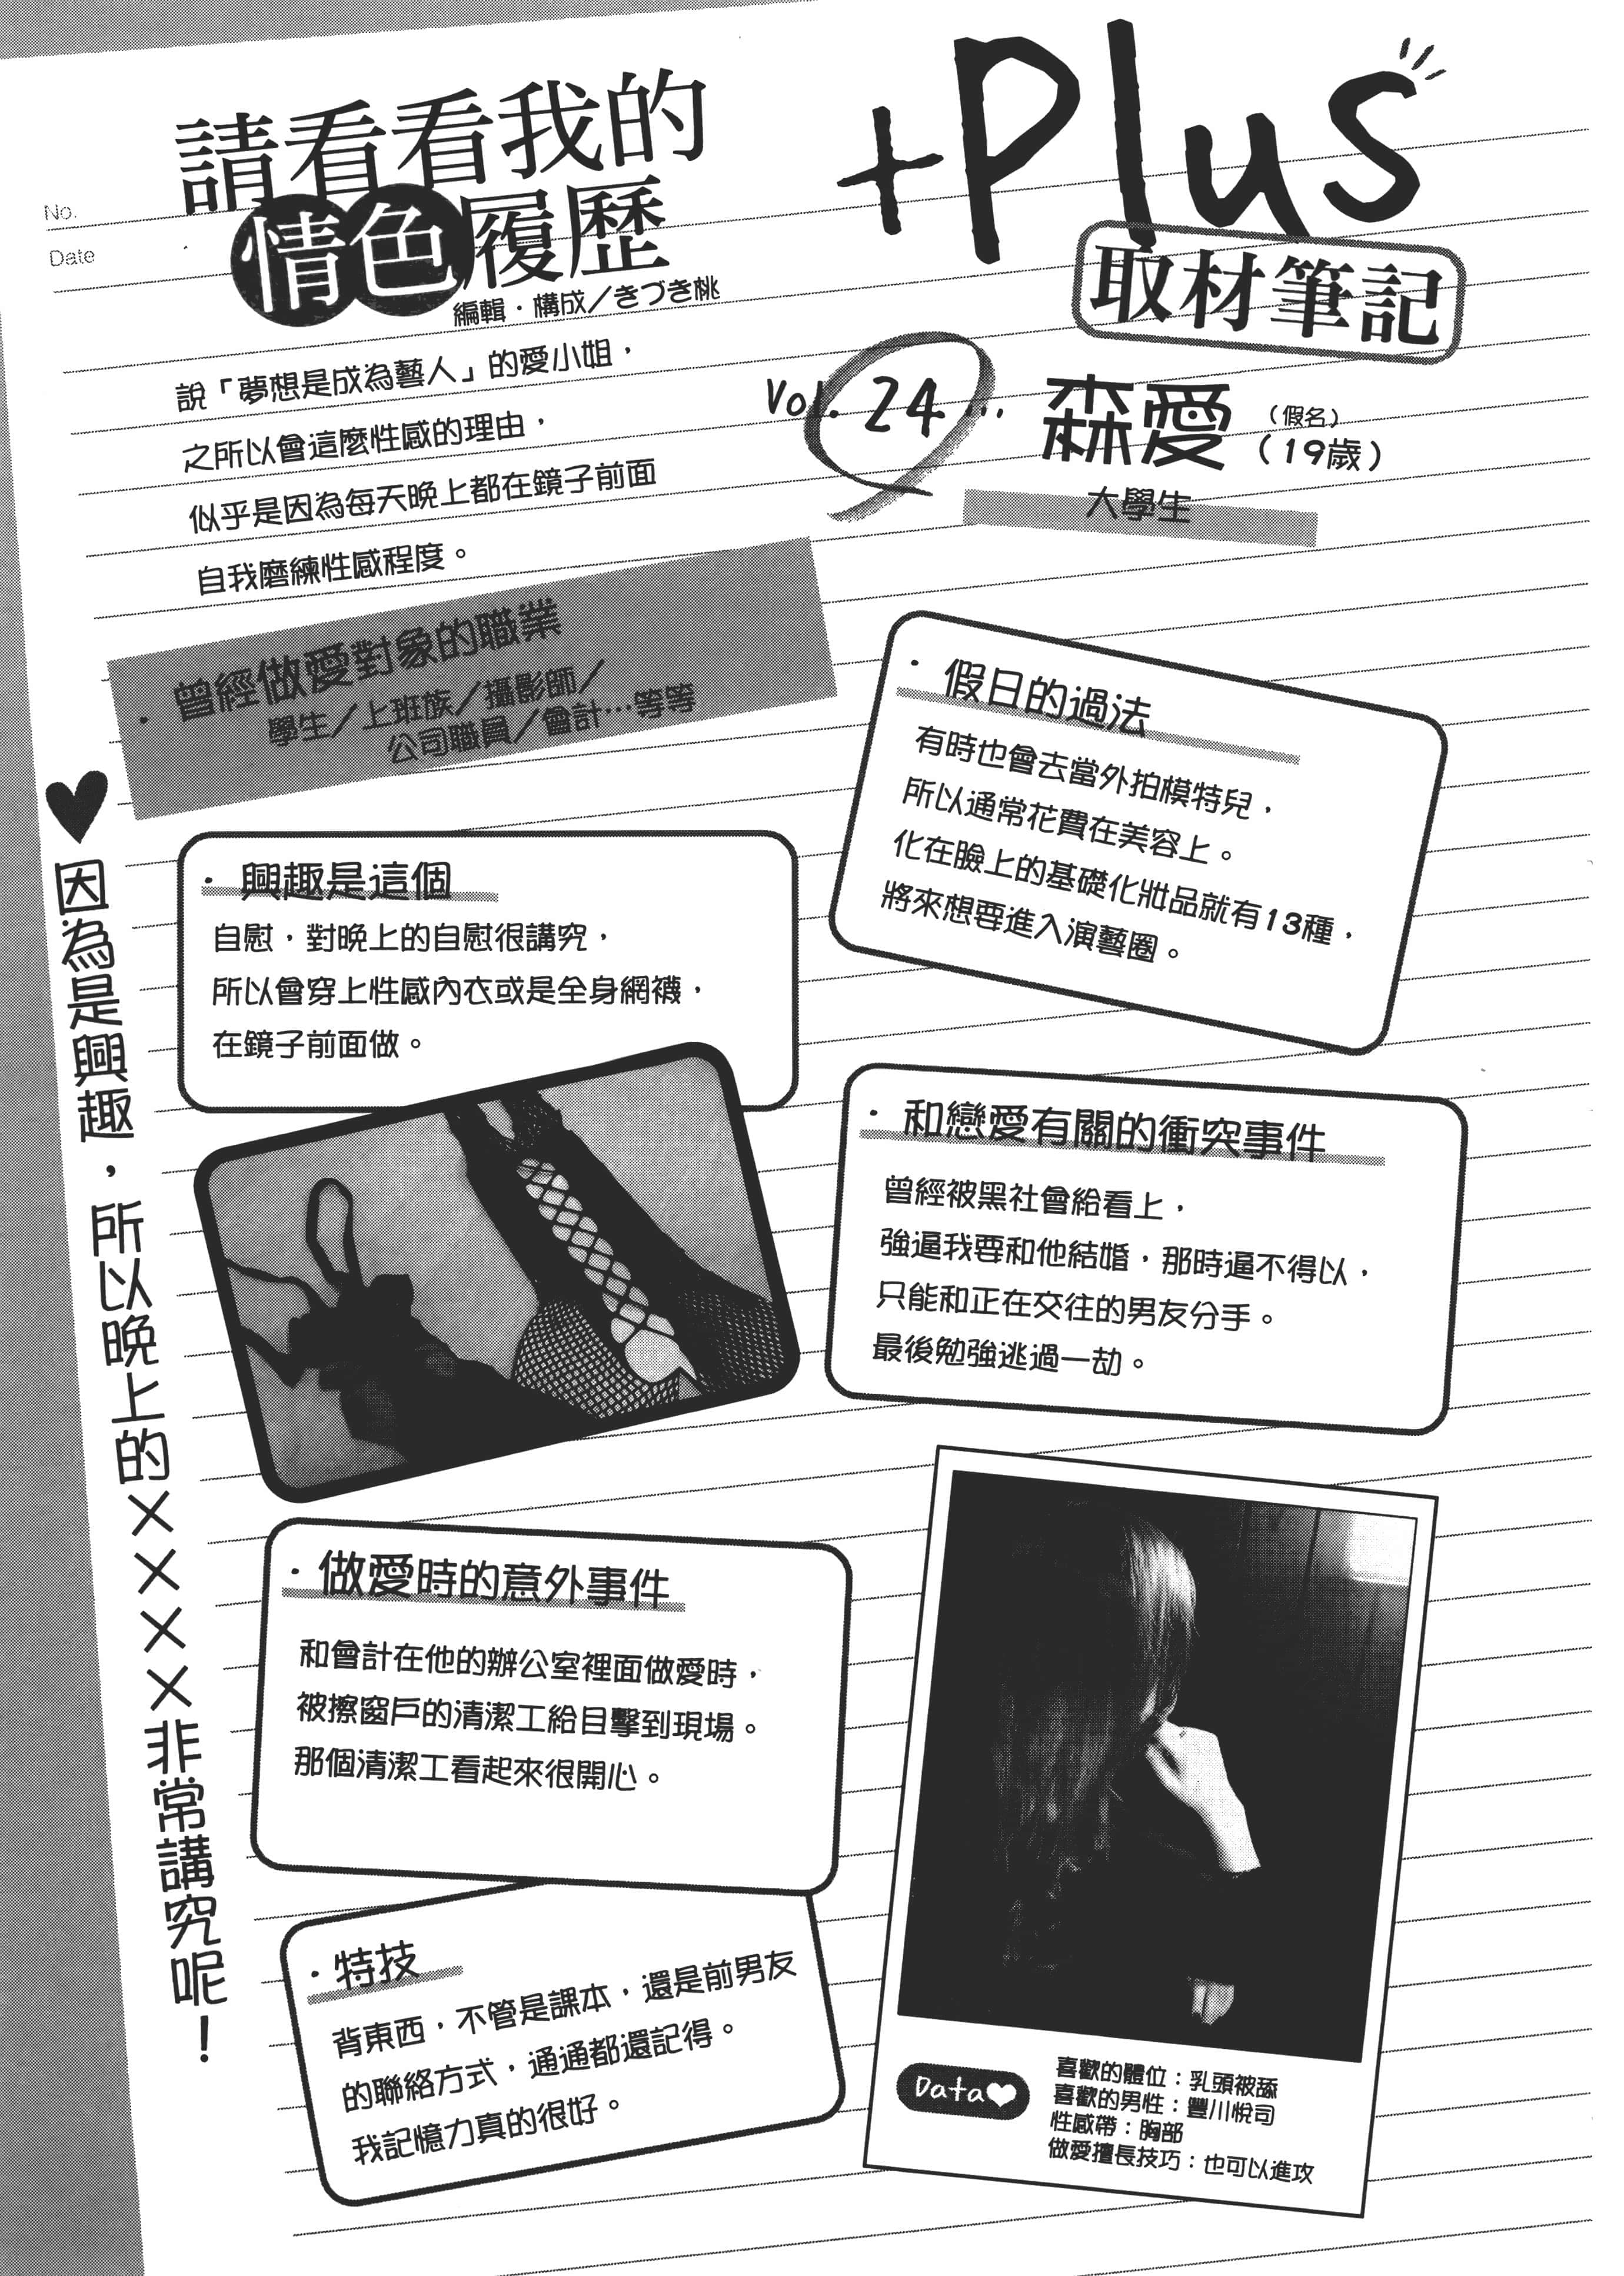 No.
Date
請看看我的
情色履歷
編輯・構成／きづき桃
+Plus
取材筆記
Vol. 24...
森愛
（假名）
（19歲）
大學生
說「夢想是成為藝人」的愛小姐，
之所以會這麼性感的理由，
似乎是因為每天晚上都在鏡子前面
自我磨練性感程度。
・曾經做愛對象的職業
學生／上班族／攝影師／
公司職員／會計…等等
・假日的過法
有時也會去當外拍模特兒，
所以通常花費在美容上。
化在臉上的基礎化妝品就有13種，
將來想要進入演藝圈。
♥因為是興趣，所以晚上的××××非常講究呢！
・興趣是這個
自慰，對晚上的自慰很講究，
所以會穿上性感內衣或是全身網襪，
在鏡子前面做。
・和戀愛有關的衝突事件
曾經被黑社會給看上，
強逼我要和他結婚，那時逼不得以，
只能和正在交往的男友分手。
最後勉強逃過一劫。
・做愛時的意外事件
和會計在他的辦公室裡面做愛時，
被擦窗戶的清潔工給目擊到現場。
那個清潔工看起來很開心。
・特技
背東西，不管是課本，還是前男友
的聯絡方式，通通都還記得。
我記憶力真的很好。
Data♥
喜歡的體位：乳頭被舔
喜歡的男性：豐川悅司
性感帶：胸部
做愛擅長技巧：也可以進攻